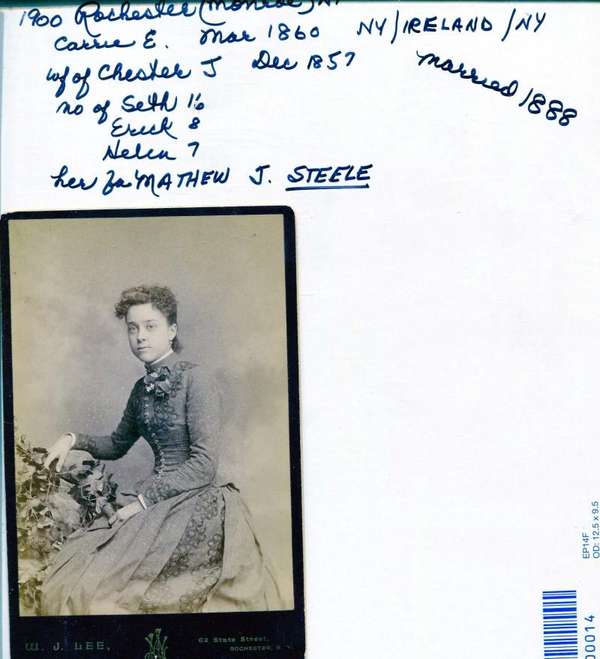 1900 Rochester (Monroe) NY
Carrie E. Mar 1860 NY/IRELAND/NY
w/of Chester J Dec 1857 married 1888
mo of Seth 16
Erick 8
Helen 7
her fa MATHEW J. STEELE
W. J. LEE,
62 State Street.
ROCHESTER, N.Y.
EP14F
OD: 12.5 x 9.5
00014